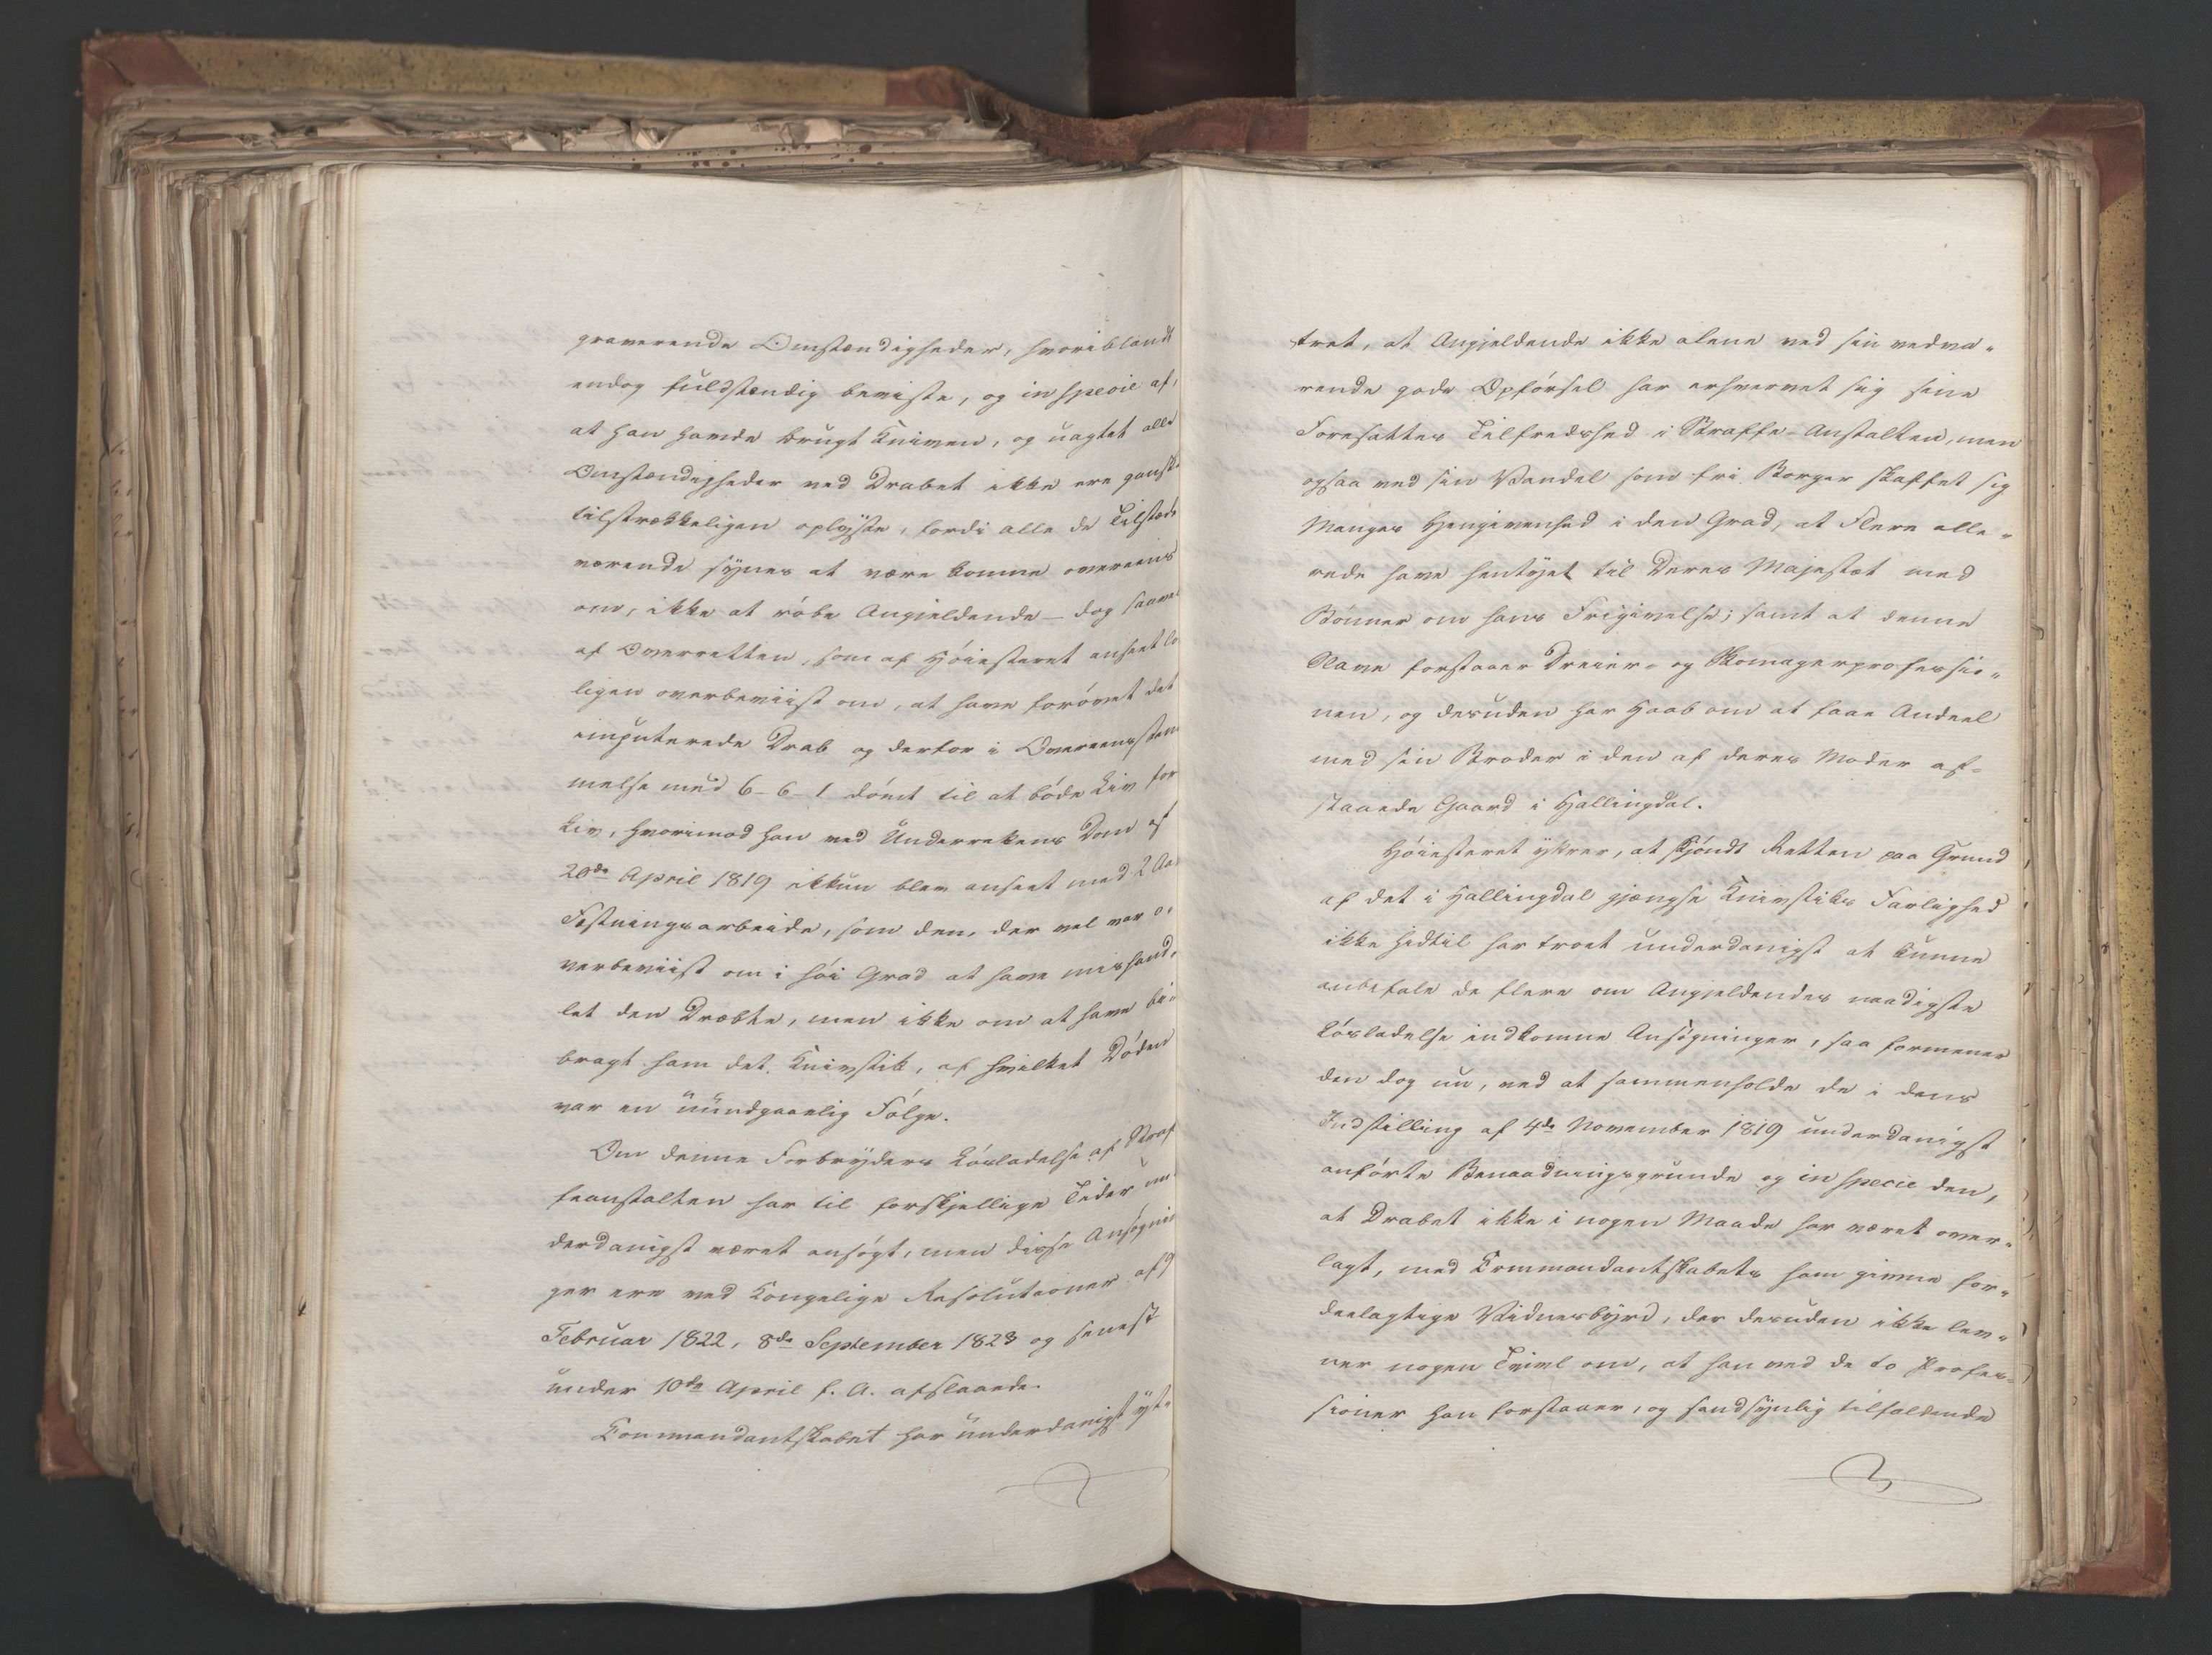 graverende Omstændigheder, hvoriblandt
endog fuldstændig beviste, og in specie af,
at han havde brugt Kniven, og uagtet alle
Omstændigheder ved Drabet ikke ere ganske
tilstrækkeligen oplyste, fordi alle de Tilstede
værende synes at være komne overeens
om, ikke at röbe Angjeldende – dog saavel
af Overretten, som af Höiesteret anseet lo
ligen overbeviist om, at have forövet det
imputerede Drab og derfor i Overeensstem
melse med 6-6-1 dömt til at böde Liv for
Liv, hvorimod han ved Underrettens Dom af
20de April 1819 ikkun blev anseet med 2 Aars
Fæstningsarbeide, som den, der vel var o-
verbeviist om i höi Grad at have mishand-
let den Dræbte, men ikke om at have bi-
bragt ham det Knivstik, af hvilket Döden
var en uundgaaelig Fölge.
Om denne Forbryders Lösladelse af Straf
feanstalten har til forskjellige Tider un
derdanigst været ansögt, men disse Ansögnin
ger ere ved Kongelige Resolutioner af 9
Februar 1822, 8de September 1823 og senest
under 10de April f. A. afslaaede.
Commandantskabet har underdanigst yt-
tret, at Angjeldende ikke alene ved sin vedva-
rende gode Opförsel har erhvervet sig sine
Foresattes Tilfredshed i Straffe-Anstalten, men
ogsaa ved sin Vandel som fri Borger skaffet sig
Manges Hengivenhed i den Grad, at Flere alle-
rede have hentyet til Deres Majestæt med
Bönner om hans Frigivelse; samt at denne
Slave forstaaer Dreier- og Skomagerprofessio-
nen, og desuden har Haab om at faae Andeel
med sin Broder i den af deres Moder af-
staaede Gaard i Hallingdal.
Höiesteret yttrer, at skjöndt Retten paa Grund
af det i Hallingdal gjængse Knivstiks Farlighed
ikke hidtil har troet underdanigst at kunne
anbefale de flere om Angjeldendes naadigste
Lösladelse indkomne Ansögninger, saa formener
den dog nu, ved at sammenholde de i dens
Indstilling af 4de November 1819 underdanigst
anförte Benaadningsgrunde og in specie den,
at Drabet ikke i nogen Maade har været over-
lagt, med Commandantskabets ham givne for-
deelagtige Vidnesbyrd, der desuden ikke lev-
ner nogen Tvivl om, at han ved de to Profes-
sioner han forstaaer, og sandsynlig tilfaldende